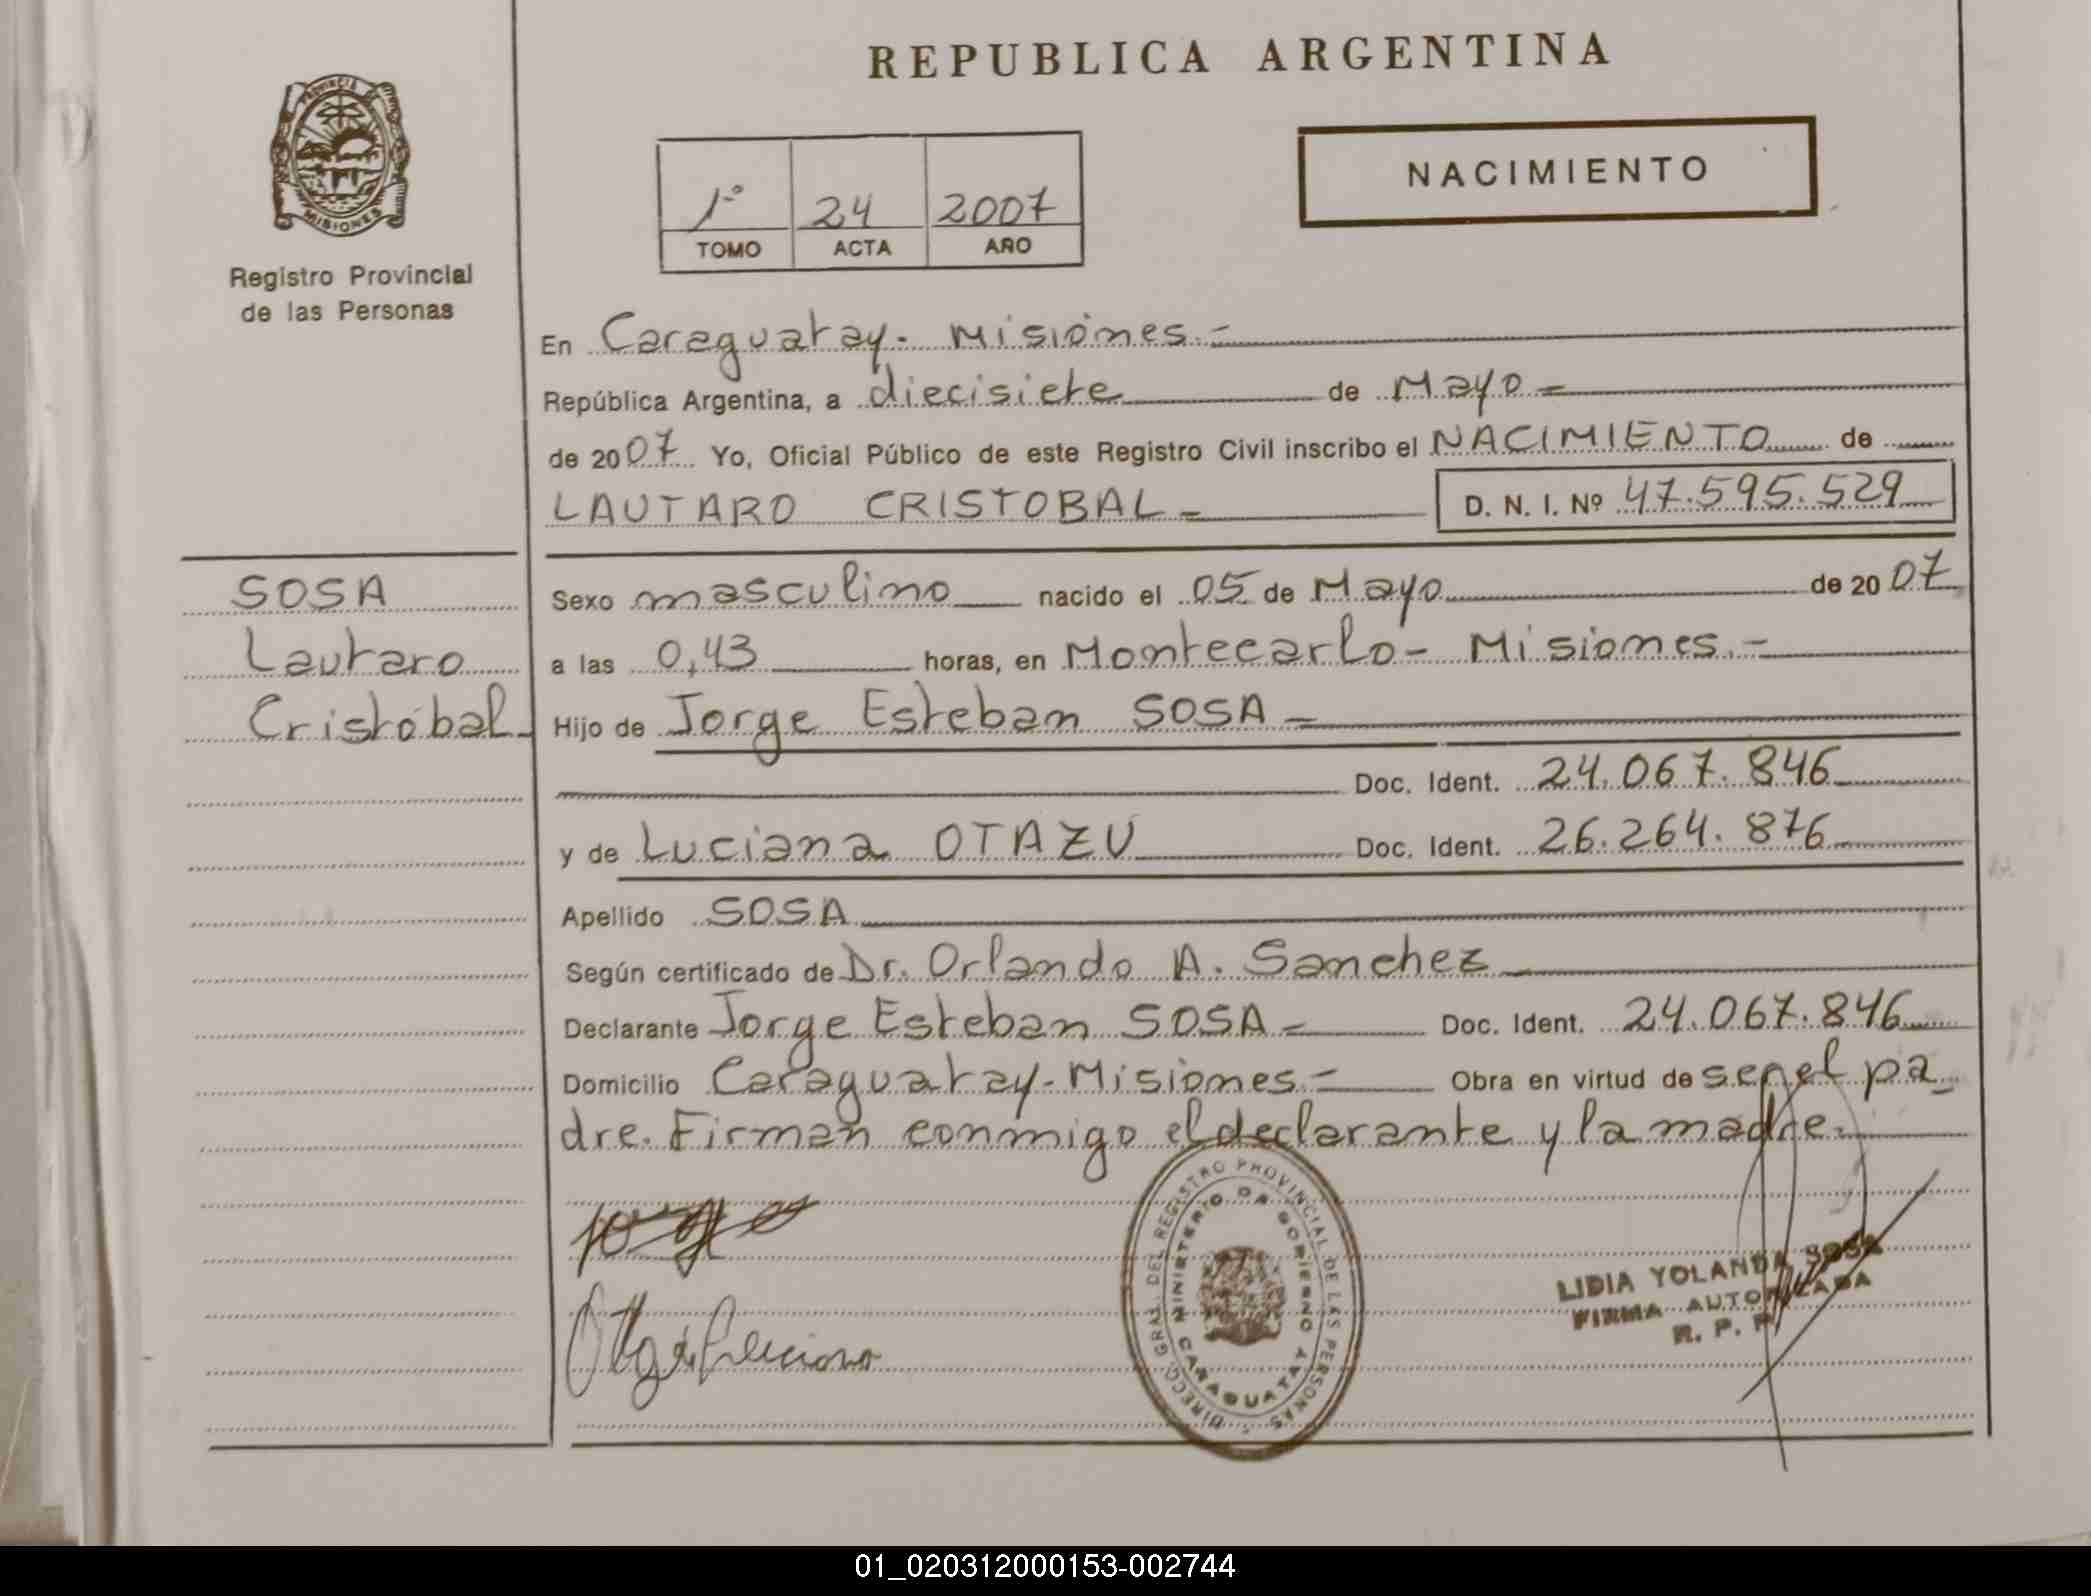 REPUBLICA ARGENTINA
PROVINCIA DE
MISIONES
Registro Provincial
de las Personas
1º 24 2007
TOMO ACTA AÑO
NACIMIENTO
En Caraguatay - Misiones.=
República Argentina, a diecisiete de Mayo =
de 2007 Yo, Oficial Público de este Registro Civil inscribo el NACIMIENTO de
LAUTARO CRISTOBAL - D. N. I. Nº 47.595.529
SOSA
Lautaro
Cristobal -
Sexo masculino nacido el 05 de Mayo de 2007
a las 0,43 horas, en Montecarlo - Misiones.-
Hijo de Jorge Esteban SOSA =
Doc. Ident. 24.067.846
y de Luciana OTAZU Doc. Ident. 26.264.876
Apellido SOSA
Según certificado de Dr. Orlando A. Sanchez
Declarante Jorge Esteban SOSA = Doc. Ident. 24.067.846
Domicilio Caraguatay - Misiones = Obra en virtud de ser el pa
dre. Firman conmigo el declarante y la madre.
DIRECC. GRAL. DEL REGISTRO PROVINCIAL DE LAS PERSONAS
MINISTERIO DE GOBIERNO
CARAGUATAY
LIDIA YOLANDA SOSA
FIRMA AUTORIZADA
R. P. P.
01_020312000153-002744